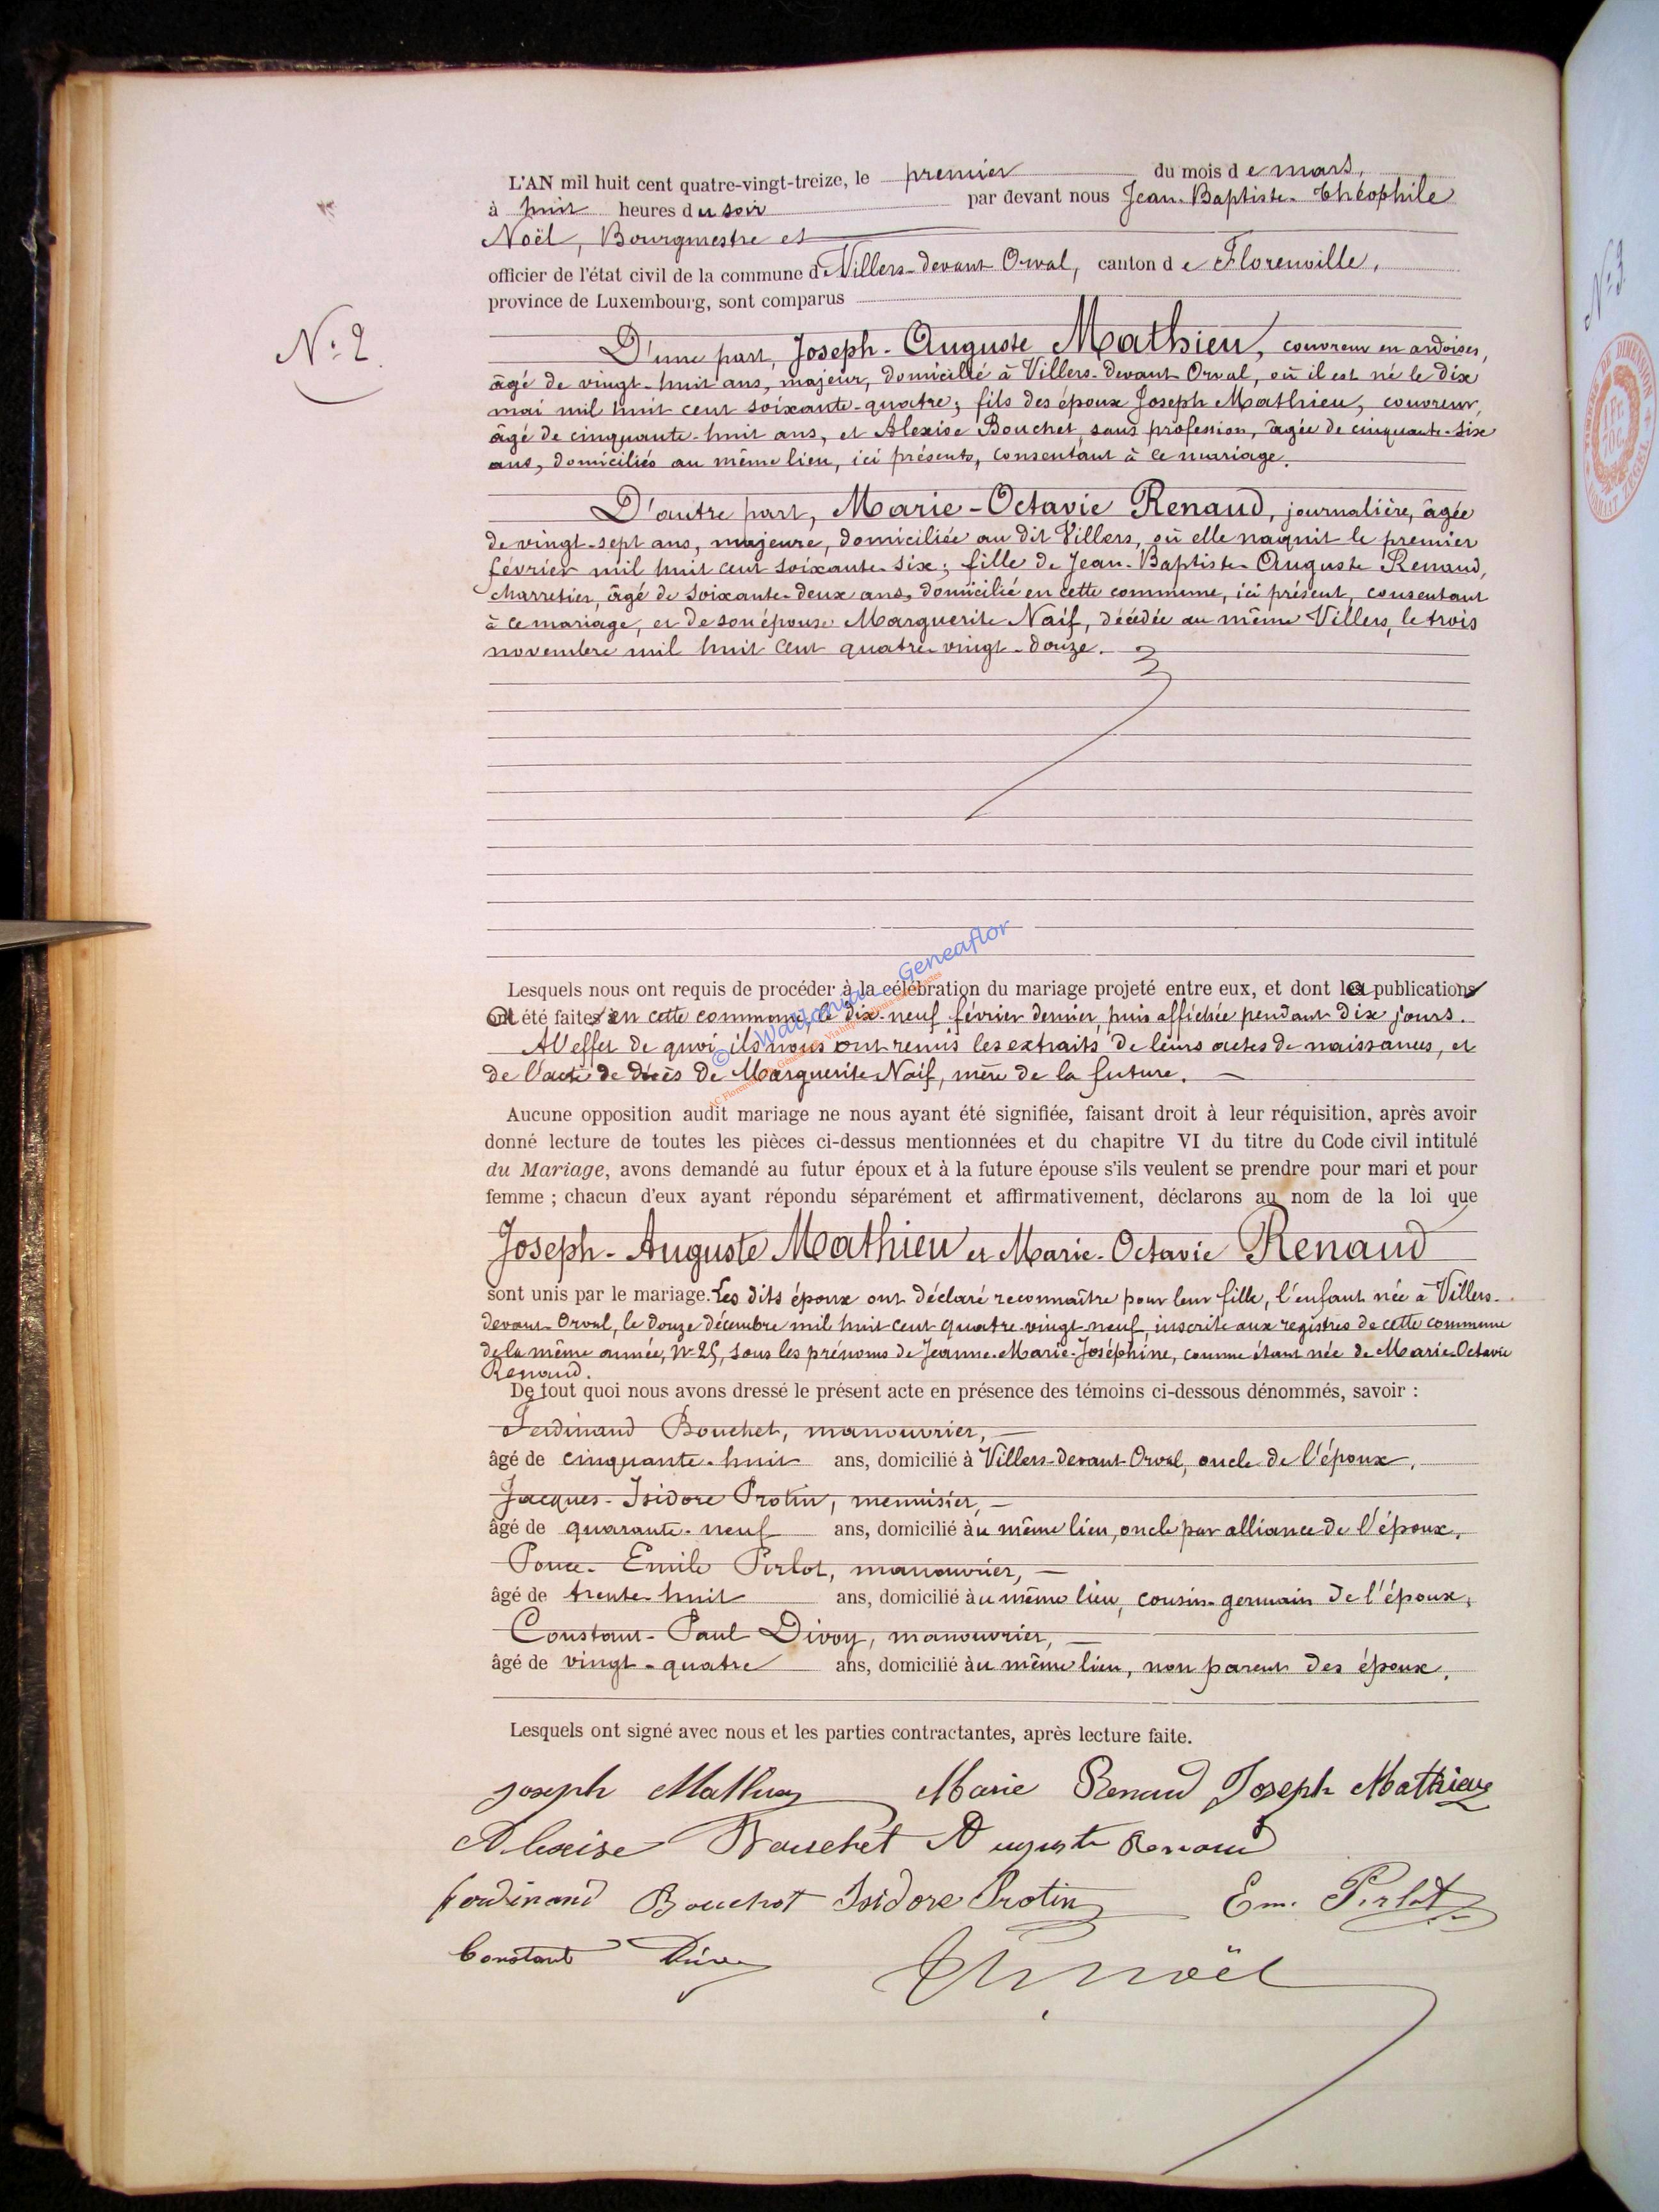 N° 2
L'AN mil huit cent quatre-vingt-treize, le premier du mois de mars,
à huit heures du soir par devant nous Jean-Baptiste-Théophile
Noël, Bourgmestre et
officier de l'état civil de la commune de Villers-devant-Orval, canton de Florenville,
province de Luxembourg, sont comparus
D'une part, Joseph-Auguste Mathieu, couvreur en ardoises,
âgé de vingt-huit ans, majeur, domicilié à Villers-devant-Orval, où il est né le dix
mai mil huit cent soixante-quatre; fils des époux Joseph Mathieu, couvreur,
âgé de cinquante-huit ans, et Alexise Bouchet, sans profession, âgée de cinquante-six
ans, domiciliés au même lieu, ici présents, consentant à ce mariage.
D'autre part, Marie-Octavie Renaud, journalière, âgée
de vingt-sept ans, majeure, domiciliée au dit Villers, où elle naquit le premier
février mil huit cent soixante-six; fille de Jean-Baptiste-Auguste Renaud,
charretier, âgé de soixante-deux ans, domicilié en cette commune, ici présent, consentant
à ce mariage, et de son épouse Marguerite Naif, décédée au même Villers, le trois
novembre mil huit cent quatre-vingt-douze.
Lesquels nous ont requis de procéder à la célébration du mariage projeté entre eux, et dont la publication
a été faite en cette commune, le dix-neuf février dernier, puis affichée pendant dix jours.
A l'effet de quoi ils nous ont remis les extraits de leurs actes de naissances, et
de l'acte de décès de Marguerite Naif, mère de la future.
© Wallonia - Geneaflor
Aucune opposition audit mariage ne nous ayant été signifiée, faisant droit à leur réquisition, après avoir
donné lecture de toutes les pièces ci-dessus mentionnées et du chapitre VI du titre du Code civil intitulé
du Mariage, avons demandé au futur époux et à la future épouse s'ils veulent se prendre pour mari et pour
femme ; chacun d'eux ayant répondu séparément et affirmativement, déclarons au nom de la loi que
Joseph-Auguste Mathieu et Marie-Octavie Renaud
sont unis par le mariage. Les dits époux ont déclaré reconnaître pour leur fille, l'enfant née à Villers-
devant-Orval, le douze décembre mil huit cent quatre-vingt-neuf, inscrite aux registres de cette commune
de la même année, N° 25, sous les prénoms de Jeanne-Marie-Joséphine, comme étant née de Marie-Octavie
Renaud.
De tout quoi nous avons dressé le présent acte en présence des témoins ci-dessous dénommés, savoir :
Ferdinand Bouchet, manouvrier,
âgé de cinquante-huit ans, domicilié à Villers-devant-Orval, oncle de l'époux,
Jacques-Isidore Protin, menuisier,
âgé de quarante-neuf ans, domicilié au même lieu, oncle par alliance de l'époux,
Ponce-Emile Pirlot, manouvrier,
âgé de trente-huit ans, domicilié au même lieu, cousin-germain de l'époux,
Constant-Paul Divoy, manouvrier,
âgé de vingt-quatre ans, domicilié au même lieu, non parent des époux.
Lesquels ont signé avec nous et les parties contractantes, après lecture faite.
Joseph Mathieu Marie Renaud Joseph Mathieu
Alexise Bouchet Auguste Renaud
ferdinand Bouchet Isidore Protin Em. Pirlot
Constant Divoy Th Noël
N° 3